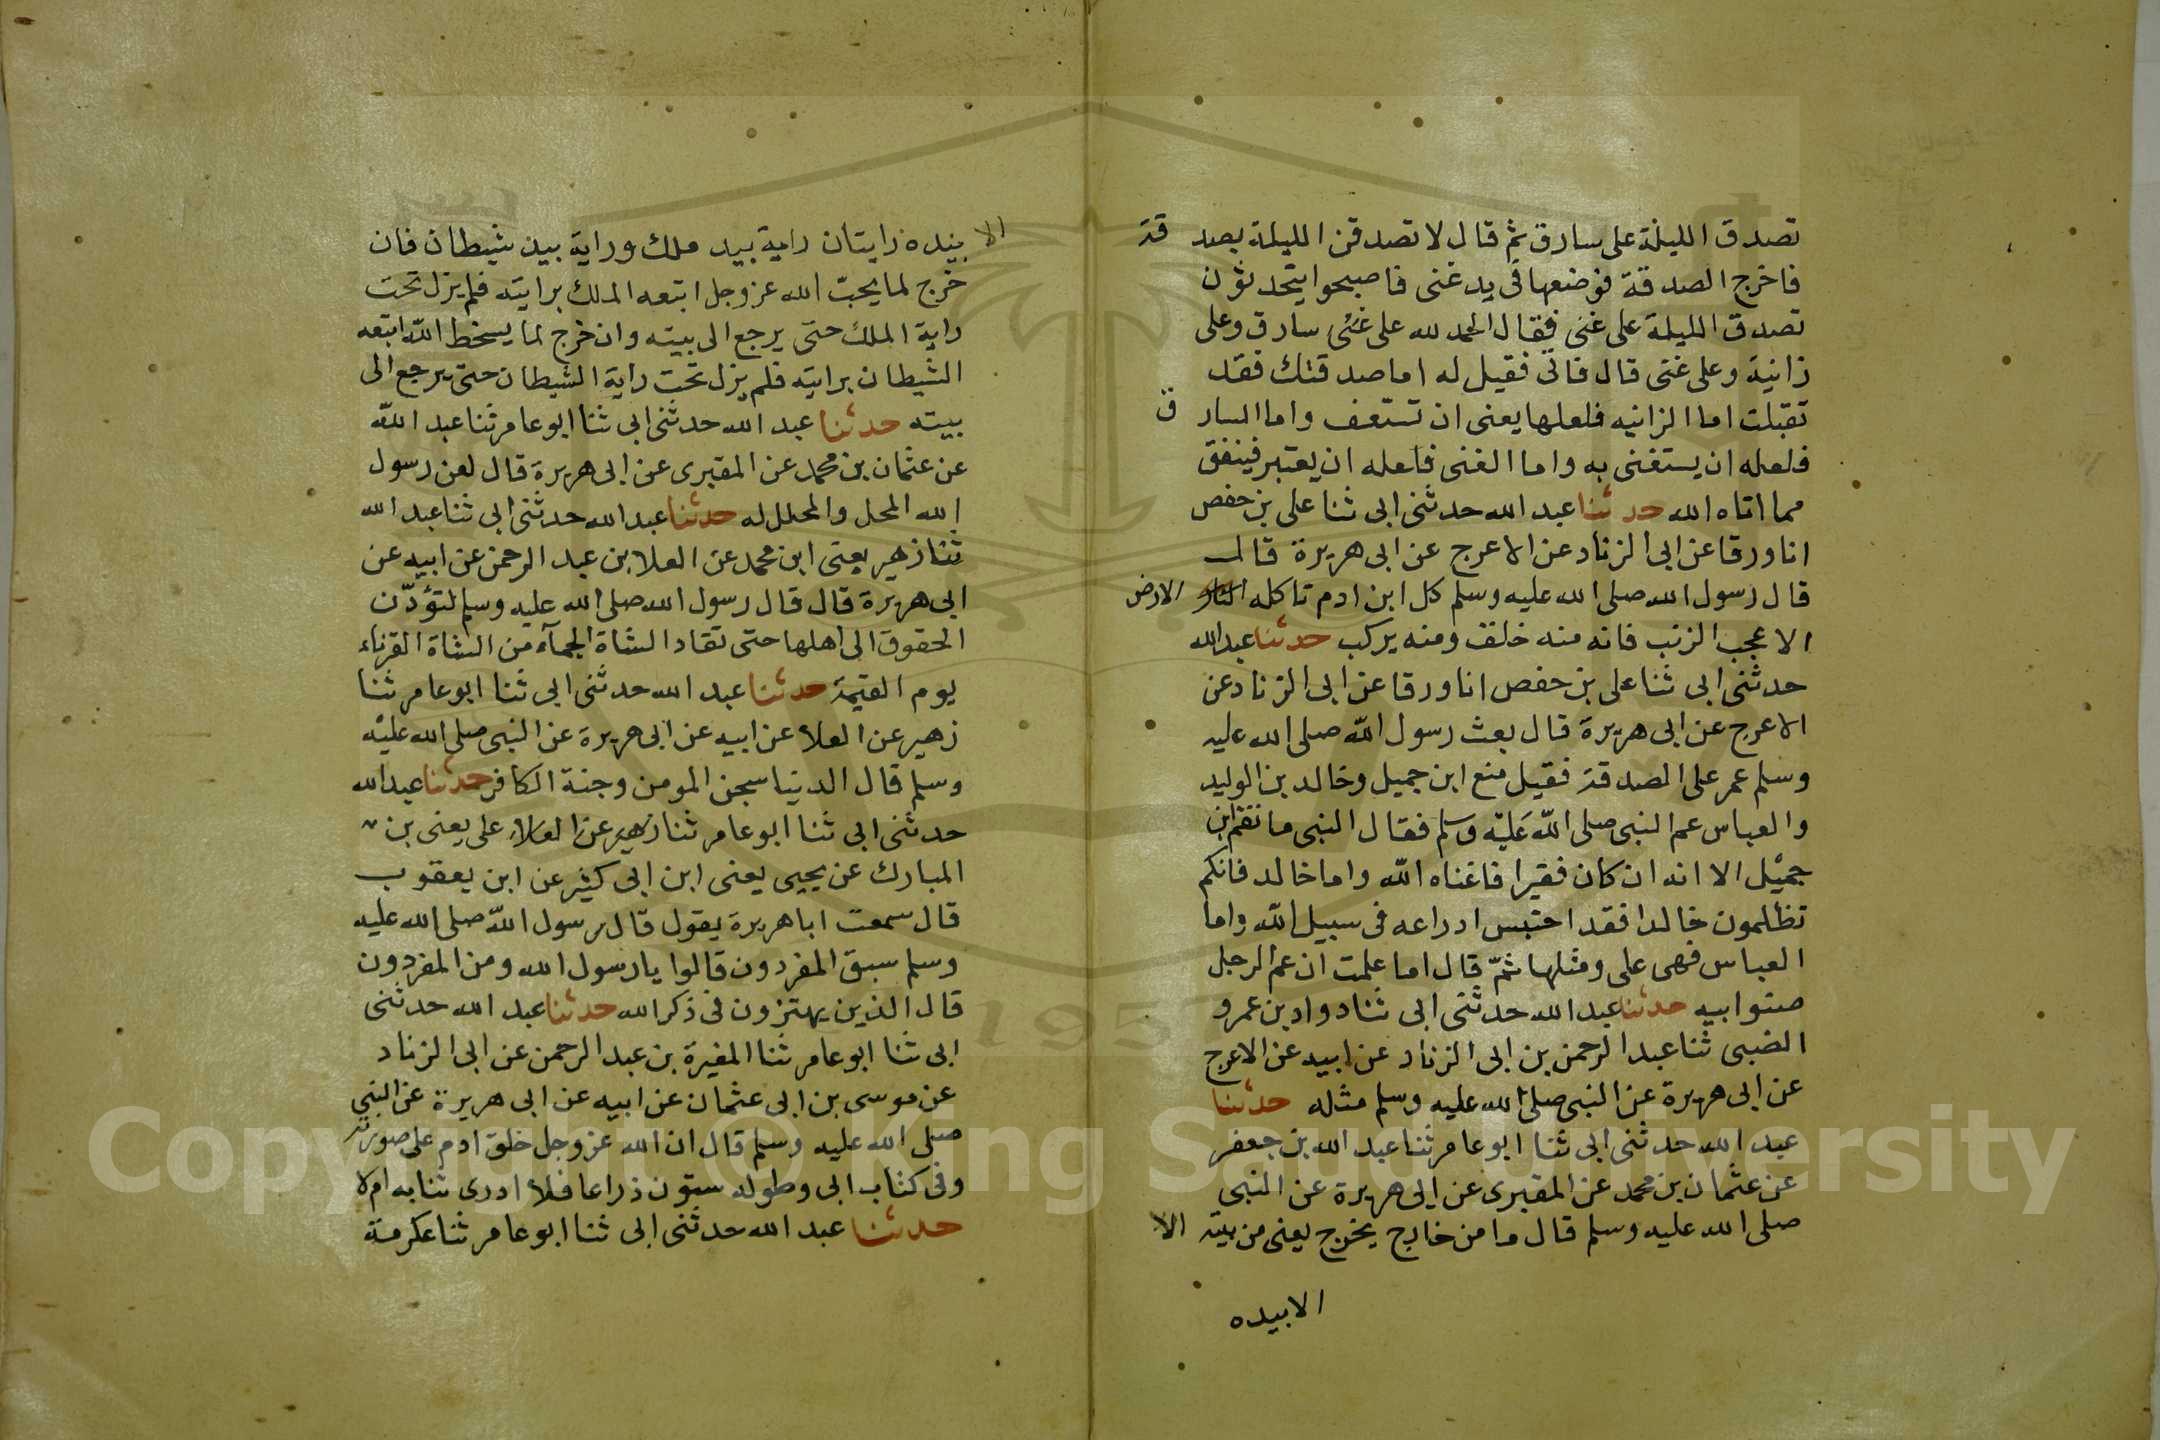 تصدق الليلة على سارق ثم قال لا تصدقن الليلة بصد قة
فاخرج الصدقة فوضعها في يد غنى فاصبحوا يتحدثون
تصدق الليلة على غنى فقال الحمد لله على غنى سارق وعلى
زانية وعلى غنى قال فاتى فقيل له اما صدقتك فقد
تقبلت اما الزانيه فلعلها يعنى ان تستعف واما السار ق
فلعله ان يستغنى به واما الغنى فلعله ان يعتبر فينفق
مما اتاه الله حدثنا عبد الله حدثنى ابى ثنا على بن حفص
انا ورقا عن ابى الزناد عن الاعرج عن ابى هريرة قال
قال رسول الله صلى الله عليه وسلم كل ابن ادم تاكله الارض
الا عجب الزنب فانه منه خلق ومنه يركب حدثنا عبد الله
حدثنى ابى ثنا على بن حفص انا ورقا عن ابى الزناد عن
الاعرج عن ابى هريرة قال بعث رسول الله صلى الله عليه
وسلم عمر على الصدقة فقيل منع ابن جميل وخالد بن الوليد
والعباس عم النبى صلى الله عليه وسلم فقال النبى ما نقم ابن
جميل الا انه ان كان فقيرا فاغناه الله واما خالد فانكم
تظلمون خالدا فقد احتبس ادراعه فى سبيل الله واما
العباس فهى على ومثلها ثم قال اما علمت ان عم الرجل
صنوابيه حدثنا عبد الله حدثنى ابى ثنا دواد بن عمرو
الضبى ثنا عبد الرحمن بن ابى الزناد عن ابيه عن الاعرج
عن ابى هريرة عن النبى صلى الله عليه وسلم مثله حدثنا
عبد الله حدثنى ابى ثنا ابو عامر ثنا عبد الله بن جعفر
عن عثمان بن محمد عن المقبرى عن ابى هريرة عن النبى
صلى الله عليه وسلم قال ما من خارج يخرج يعنى من بيته الا
الابيده
الا بيده رايتان راية بيد ملك وراية بيد شيطان فان
خرج لما يحب الله عز وجل اتبعه الملك برايته فلم يزل تحت
راية الملك حتى يرجع الى بيته وان خرج لما يسخط الله اتبعه
الشيطان برايته فلم يزل تحت راية الشيطان حتى يرجع الى
بيته حدثنا عبد الله حدثنى ابى ثنا ابو عامر ثنا عبد الله
عن عثمان بن محمد عن المقبرى عن ابى هريرة قال لعن رسول
الله المحل والمحلل له حدثنا عبد الله حدثنى ابى ثنا عبد الله
ثنا زهير يعنى ابن محمد عن العلا بن عبد الرحمن عن ابيه عن
ابى هريرة قال قال رسول الله صلى الله عليه وسلم لتؤدن
الحقوق الى اهلها حتى تقاد الشاة الجماء من الشاة القرناء
يوم القيمة حدثنا عبد الله حدثنى ابى ثنا ابو عامر ثنا
زهير عن العلا عن ابيه عن ابى هريرة عن النبى صلى الله عليه
وسلم قال الدنيا سجن المومن وجنة الكافر حدثنا عبد الله
حدثنى ابى ثنا ابو عامر ثنا زهير عن العلاء على يعنى بن
المبارك عن يحيى يعنى ابن ابى كثير عن ابن يعقوب
قال سمعت ابا هريرة يقول قال رسول الله صلى الله عليه
وسلم سبق المفردون قالوا يا رسول الله ومن المفردون
قال الذين يهتزون فى ذكر الله حدثنا عبد الله حدثنى
ابى ثنا ابو عامر ثنا المغيرة بن عبد الرحمن عن ابى الزناد
عن موسى بن ابى عثمان عن ابيه عن ابى هريرة عن النبى
صلى الله عليه وسلم قال ان الله عز وجل خلق ادم على صورته
وفى كتاب ابى وطوله ستون ذراعا فلا ادرى ثنا به ام لا
حدثنا عبد الله حدثنى ابى ثنا ابو عامر ثنا عكرمة
1957
Copyright © King Saud University